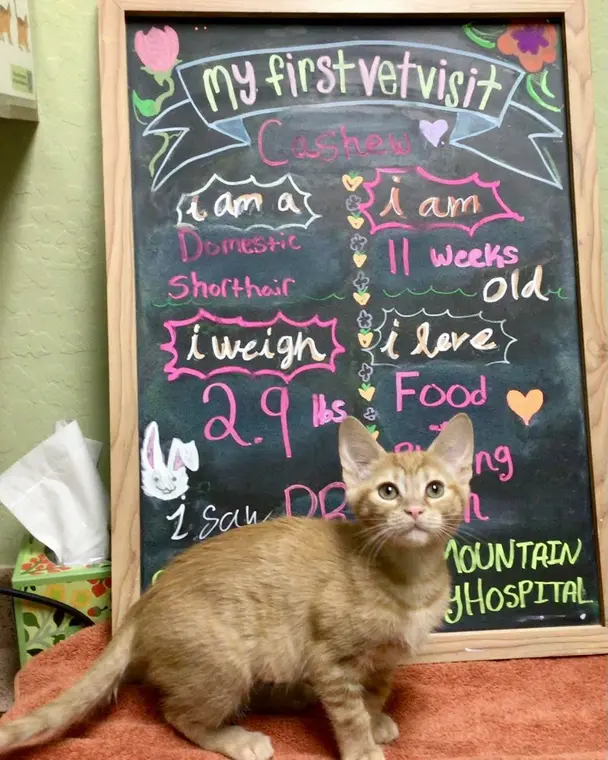 my first vet visit
Cashew
i am a
Domestic
Shorthair
i am
11 weeks
old
i weigh
2.9 lbs
i love
Food
i saw DR
MOUNTAIN
HOSPITAL